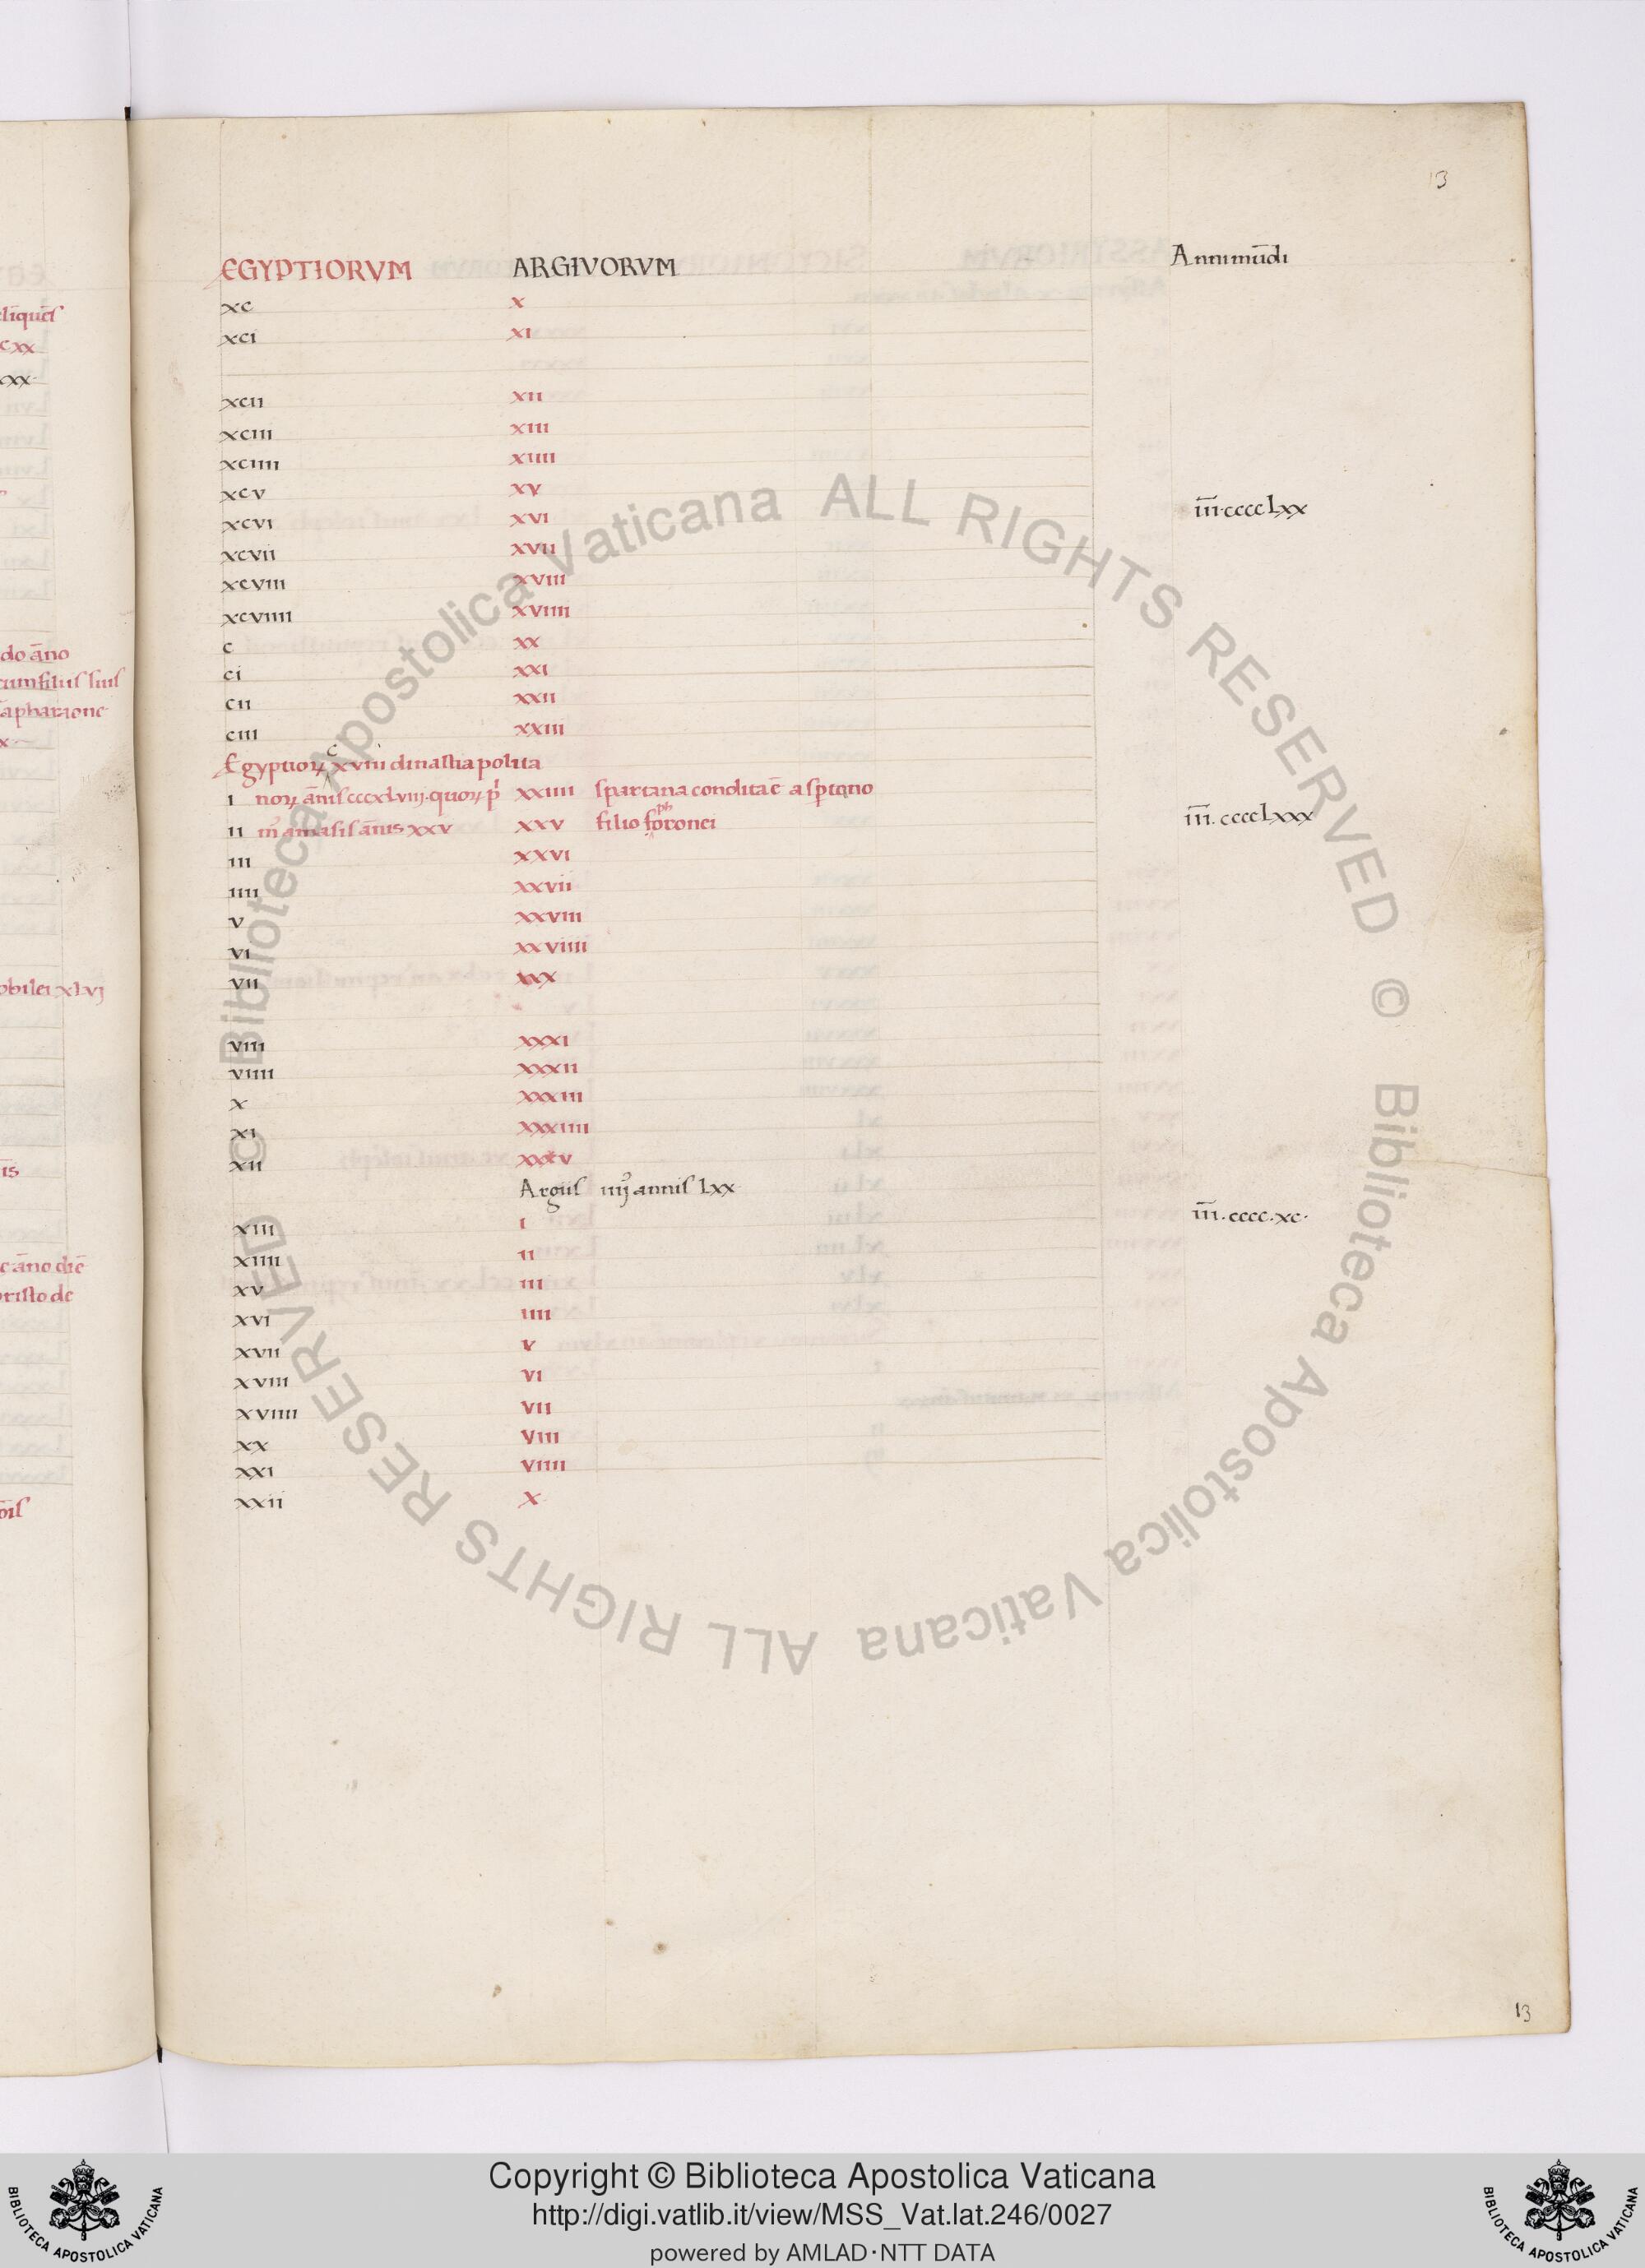 13
EGYPTIORVM ARGIVORVM Anni mūdi
xc x
xci xi
xcii xii
xciii xiii
xciiii xiiii
xcv xv
xcvi xvi iii̅·cccclxx
xcvii xvii
xcviii xviii
xcviiii xviiii
c xx
ci xxi
cii xxii
ciii xxiii
Egyptioꝝ xviii dinastia polita
i noꝝ ānis cccxlviij. quoꝝ p' xxiiii spartana condita ē a sptano
ii m' amasis ānis xxv xxv filio foronei iii̅.cccclxxx
iii xxvi
iiii xxvii
v xxviii
vi xxviiii
vii xxx
viii xxxi
viiii xxxii
x xxxiii
xi xxxiiii
xii xxxv
Argus iiij' annis lxx
xiii i iii̅.cccc.xc.
xiiii ii
xv iii
xvi iiii
xvii v
xviii vi
xviiii vii
xx viii
xxi viiii
xxii x
13
© Biblioteca Apostolica Vaticana ALL RIGHTS RESERVED © Biblioteca Apostolica Vaticana ALL RIGHTS RESERVED
Copyright © Biblioteca Apostolica Vaticana
http://digi.vatlib.it/view/MSS_Vat.lat.246/0027
powered by AMLAD·NTT DATA
BIBLIOTECA APOSTOLICA VATICANA
BIBLIOTECA APOSTOLICA VATICANA